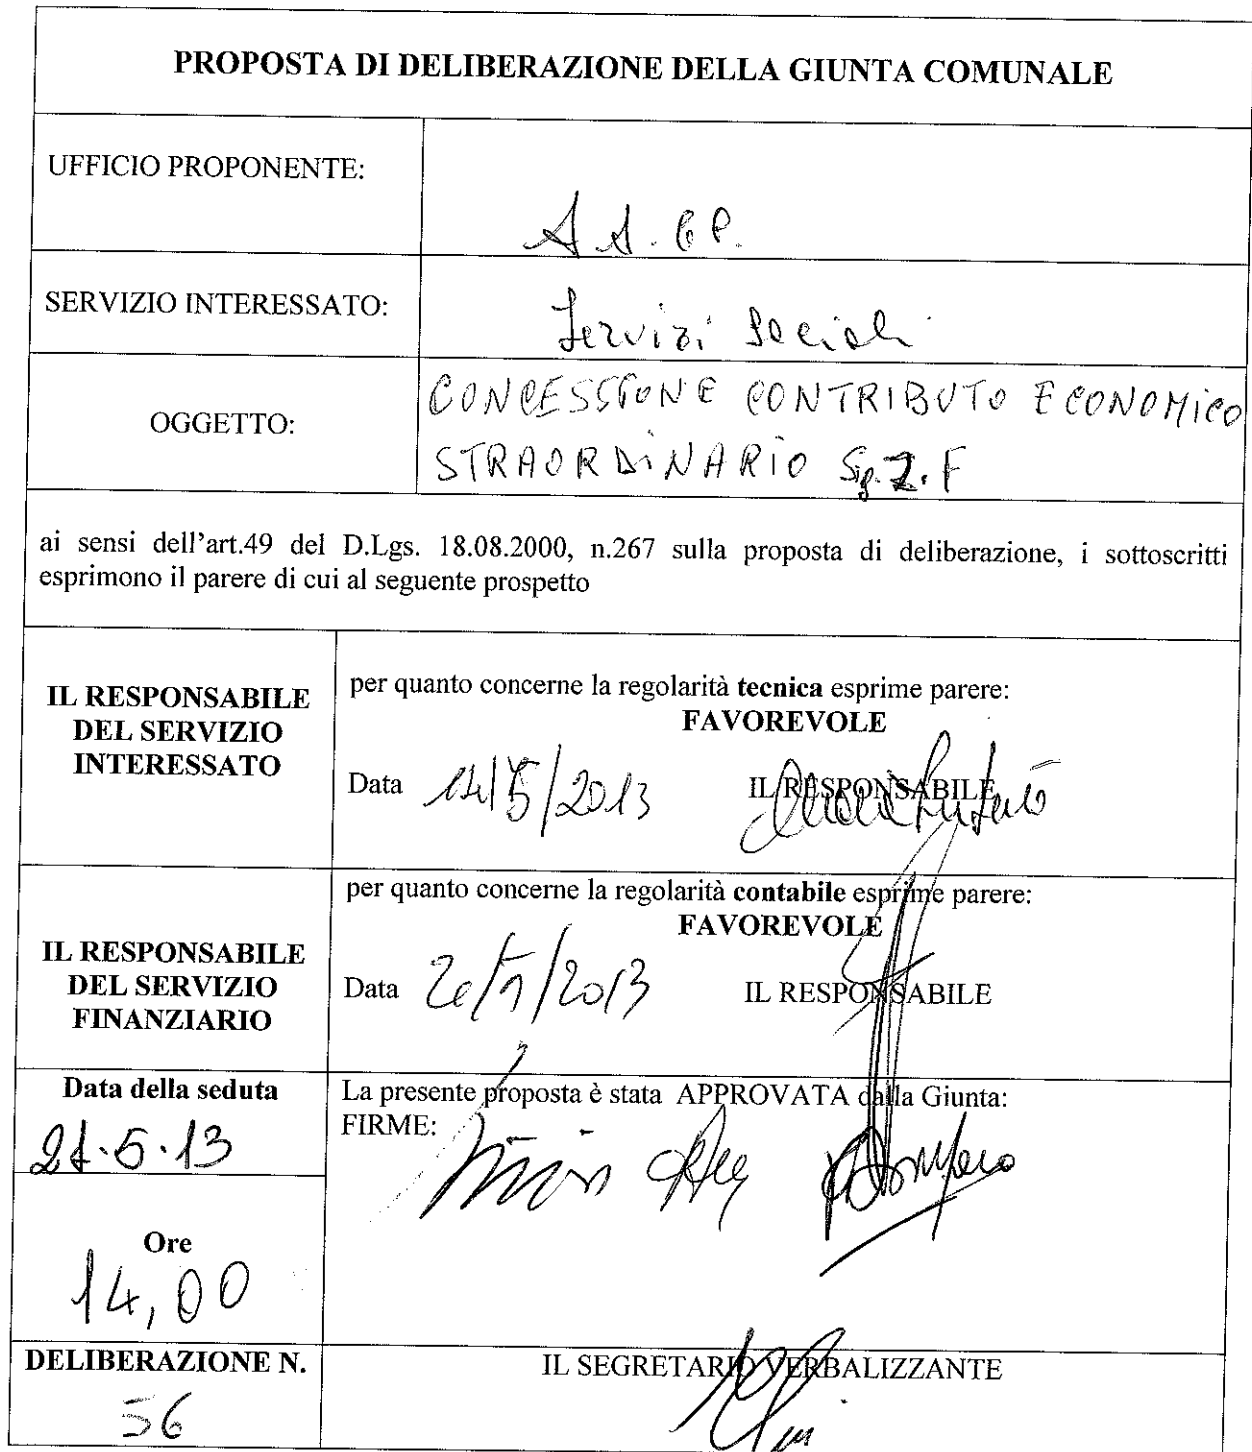 PROPOSTA DI DELIBERAZIONE DELLA GIUNTA COMUNALE
UFFICIO PROPONENTE:
A A. GP.
SERVIZIO INTERESSATO:
Servizi Sociali
OGGETTO:
CONCESSIONE CONTRIBUTO ECONOMICO
STRAORDINARIO Sig. Z. F
ai sensi dell'art.49 del D.Lgs. 18.08.2000, n.267 sulla proposta di deliberazione, i sottoscritti
esprimono il parere di cui al seguente prospetto
IL RESPONSABILE
DEL SERVIZIO
INTERESSATO
per quanto concerne la regolarità tecnica esprime parere:
FAVOREVOLE
Data 14/5/2013 IL RESPONSABILE
IL RESPONSABILE
DEL SERVIZIO
FINANZIARIO
per quanto concerne la regolarità contabile esprime parere:
FAVOREVOLE
Data /2013 IL RESPONSABILE
Data della seduta
21.5.13
Ore
14,00
La presente proposta è stata APPROVATA dalla Giunta:
FIRME:
DELIBERAZIONE N.
56
IL SEGRETARIO VERBALIZZANTE